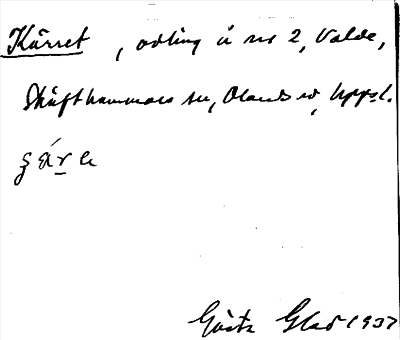 Kärret, odling å nr 2, Valde,
Skäfthammars sn, Olands hd, Uppsl.
Gösta Glad 1937